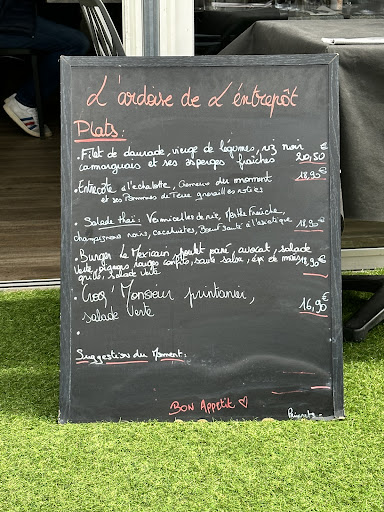 L'ardoise de L'éntrepôt
Plats :
• Filet de daurade, vierge de légumes, riz noir
camarguais et ses asperges fraîches 20,50 €
• Entrecôte à l'échalotte, du moment 18,90€
et ses Pommes de Terre grenailles roties
Salade thaï : Vermicelles de riz, Menthe Fraîche,
champignons noirs, cacahuètes, Boeuf Sauté à l'asiatique 18,90€
• Burger Le Mexicain, poulet pané, avocat, salade
verte, pignons rouges confits, sauce salsa, épi de maïs 18,90€
grillé, salade verte
• Croq' Monsieur printanier, 16,90€
salade verte
•
Suggestion du Moment :
BON Appetit ♡